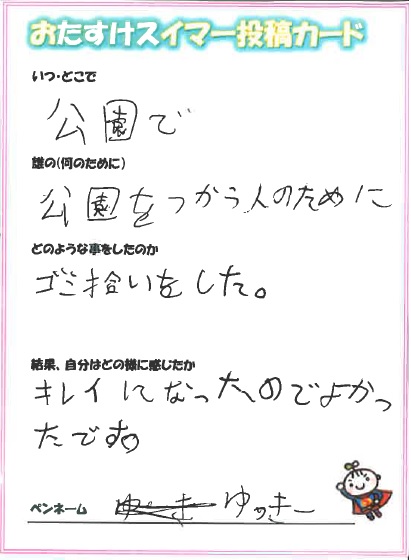 おたすけスイマー投稿カード
いつ・どこで
公園で
誰の(何のために)
公園をつかう人のために
どのような事をしたのか
ゴミ拾いをした。
結果、自分はどの様に感じたか
キレイになったのでよかっ
たです。
ペンネーム ゆっきー